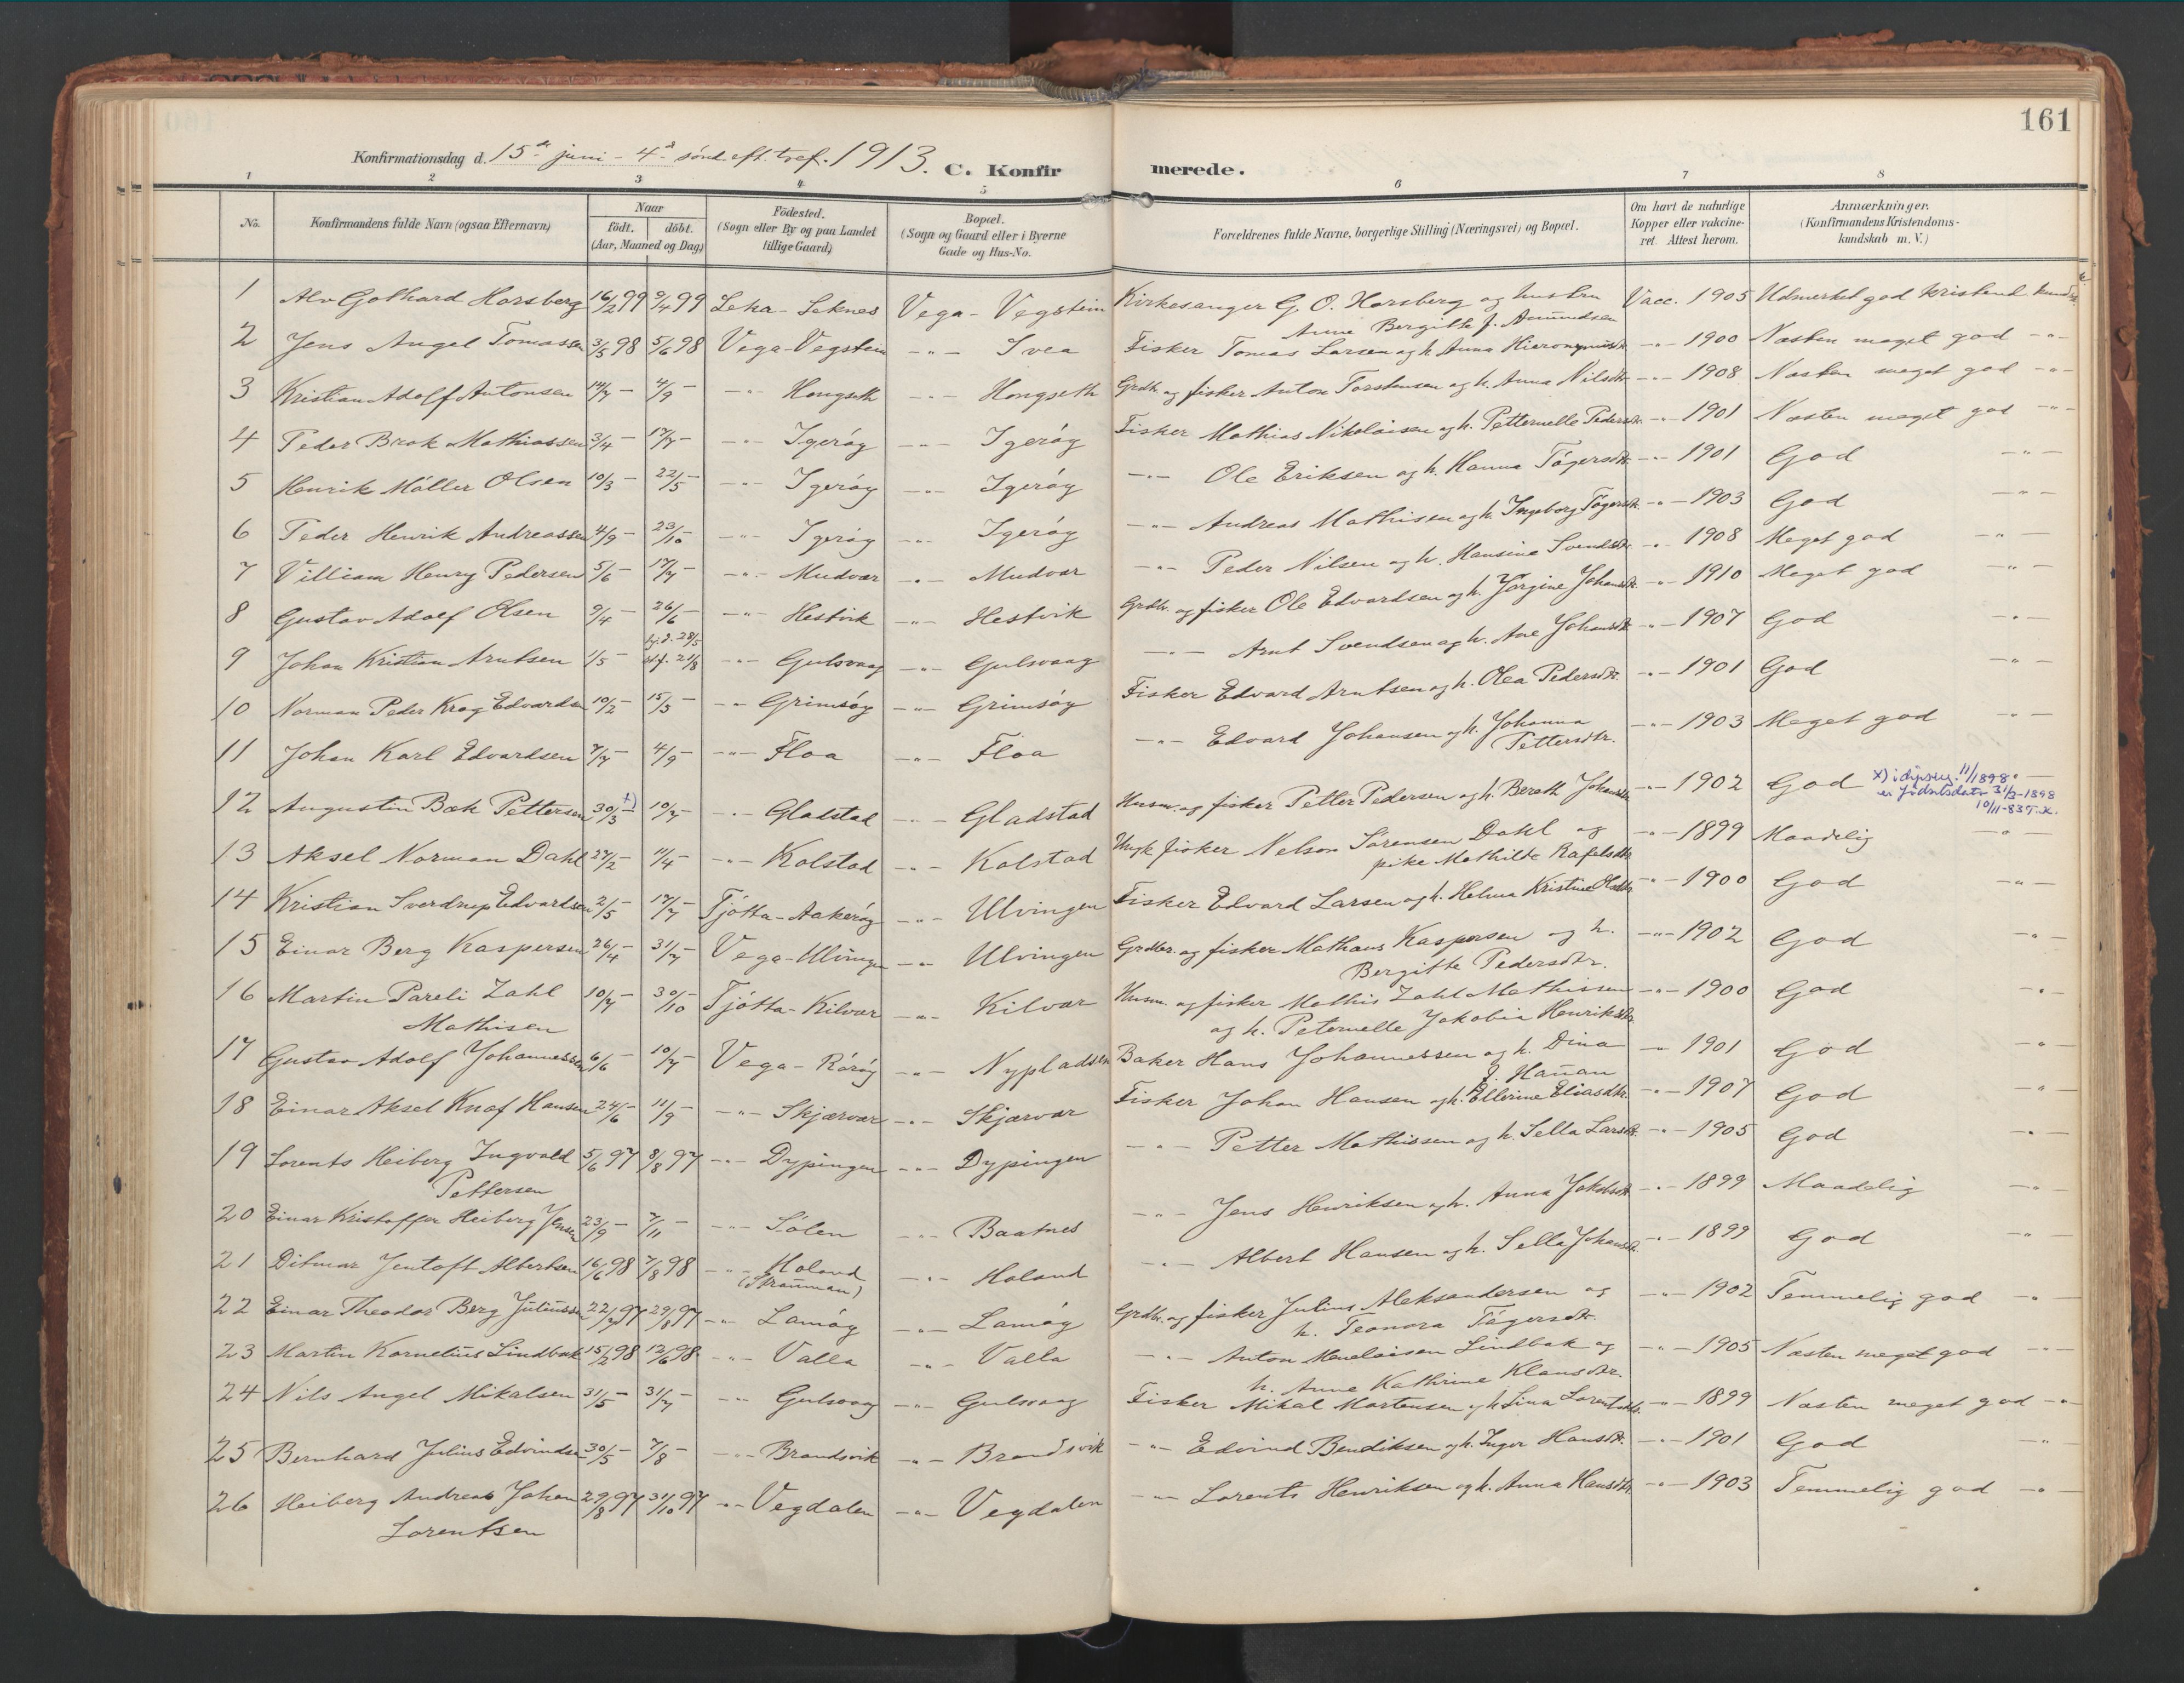 161
Konfirmationsdag d. 15de juni - 4de sønd. eft. tref. 1913. C. Konfirmerede.
1 2 3 4 5 6 7 8
No. Konfirmandens fulde Navn (ogsaa Efternavn) Naar födt. döbt. (Aar, Maaned og Dag) Födested. (Sogn eller By og paa Landet tillige Gaard) Bopæl. (Sogn og Gaard eller i Byerne Gade og Hus-No. Forældrenes fulde Navne, borgerlige Stilling (Næringsvei) og Bopæl. Om havt de naturlige Kopper eller vakcineret. Attest herom. Anmærkninger. (Konfirmandens Kristendomskundskab m. V.)
1 Alv Gothard Horsberg 16/2 99 9/4 99 Leka - Leknes Vega - Vegstein Kirkesanger G. O. Horsberg og hustru Anne Bergitte f. Amundsen Vacc. 1905 Udmerket god kristend. kundsk.
2 Jens Angel Tomassen 3/5 98 5/6 98 Vega - Vegstein -"- Ivea Fisker Tomas Larsen og h. Anna Hieronymusdtr. -"- 1900 Næsten meget god -"-
3 Kristian Adolf Antonsen 14/7 - 4/9 - -"- Hongseth -"- Hongseth Grdb. og fisker Anton Torstensen og h. Anna Nilsdtr. -"- 1908 Næsten meget god -"-
4 Peder Brok Mathiassen 3/4 - 17/7 - -"- Igeröy -"- Igeröy Fisker Mathias Nikolaisen og h. Petternelle Pedersdtr. -"- 1901 Næsten meget god -"-
5 Henrik Möller Olsen 10/3 - 22/5 - -"- Igeröy -"- Igeröy -"- Ole Eriksen og h. Hanna Tögersdtr. -"- 1901 God -"-
6 Peder Henrik Andreassen 4/9 - 23/10 - -"- Igeröy -"- Igeröy -"- Andreas Mathisen og h. Ingeborg Tögersdtr. -"- 1903 God -"-
7 Villiam Henry Pedersen 5/6 - 17/7 - -"- Mudvær -"- Mudvær -"- Peder Nilsen og h. Hansine Svendsdtr. -"- 1908 Meget god -"-
8 Gustav Adolf Olsen 9/4 - 26/6 - -"- Hestvik -"- Hestvik Grdbr. og fisker Ole Edvardsen og h. Jörgine Johansdtr. -"- 1910 Meget god -"-
9 Johan Kristian Arntsen 1/5 - hj.d. 28/5 stf. 21/8 -"- Gulsvaag -"- Gulsvaag -"- Arnt Svendsen og h. Ane Johansdtr. -"- 1907 God -"-
10 Norman Peder Krog Edvardsen 10/2 - 15/5 - -"- Grimsöy -"- Grimsöy Fisker Edvard Arntsen og h. Olea Pedersdtr. -"- 1901 God -"-
11 Johan Karl Edvardsen 7/7 - 4/9 - -"- Floa -"- Floa -"- Edvard Johansen og h. Johanna Pettersdtr. -"- 1903 Meget god -"-
12 Augustin Bæk Pettersen 30/3 x) - 10/7 - -"- Gladstad -"- Gladstad Husm. og fisker Petter Pedersen og h. Bereth Johansdtr. -"- 1902 God -"-
x) 11/1898 er fødselsdato 31/3-1898 10/11-83 T.K.
13 Aksel Norman Dahl 27/2 - 11/4 - -"- Kolstad -"- Kolstad Ungk. fisker Nelson Sörensen Dahl og pike Mathilde Rafelsdtr. -"- 1899 Maadelig -"-
14 Kristian Sverdrup Edvardsen 2/5 - 17/7 - Tjötta - Aakeröy -"- Ulvingen Fisker Edvard Larsen og h. Helma Kristine Olsdtr. -"- 1900 God -"-
15 Einar Berg Kaspersen 26/4 - 31/7 - Vega - Ulvingen -"- Ulvingen Grdbr. og fisker Mathæus Kaspersen og h. Bergitte Pedersdtr. -"- 1902 God -"-
16 Martin Pareli Zahl Mathisen 10/7 - 30/10 - Tjötta - Kilvær -"- Kilvær Husm. og fisker Mathis Zahl Mathissen og h. Peternelle Jakobia Henriksdtr. -"- 1900 God -"-
17 Gustav Adolf Johannessen 6/6 - 10/7 - Vega - Röröy -"- Nypladsen Baker Hans Johannessen og h. Dina J. Hanan -"- 1901 God -"-
18 Einar Aksel Knof Hansen 24/6 - 11/9 - -"- Skjærvær -"- Skjærvær Fisker Johan Hansen og h. Ellerine Eliasdtr. -"- 1907 God -"-
19 Lorents Heiberg Ingvald Pettersen 5/6 97 8/8 97 -"- Dypingen -"- Dypingen -"- Petter Mathissen og h. Sella Larsdtr. -"- 1905 God -"-
20 Einar Kristoffer Heiberg Jensen 23/9 - 7/11 - -"- Sölen -"- Baatnes -"- Jens Henriksen og h. Anna Jakobsdtr. -"- 1899 Maadelig -"-
21 Ditmar Jentoft Albertsen 16/6 98 7/8 98 -"- Holand -"- Holand -"- Albert Hansen og h. Sella Johansdtr. -"- 1899 God -"-
22 Einar Theodor Berg Juliussen 22/7 97 29/8 97 -"- Lamöy -"- Lamöy Grdbr. og fisker Julius Aleksandersen og h. Teonora Tögersdtr. -"- 1902 Temmelig god -"-
23 Martin Kornelius Lindbæk 15/2 98 12/6 98 -"- Valla -"- Valla -"- Anton Menelaisen Lindbæk og h. Anne Kathrine Klausdtr. -"- 1905 Næsten meget god -"-
24 Nils Angel Mikalsen 31/5 - 31/7 - -"- Gulsvaag -"- Gulsvaag Fisker Mikal Mortensen og h. Lina Lorentsdtr. -"- 1899 Næsten meget god -"-
25 Bernhard Julius Edvindsen 30/5 - 7/8 - -"- Brandsvik -"- Brandsvik -"- Edvind Bendiksen og h. Inger Hansdtr. -"- 1901 God -"-
26 Heiberg Andreas Johan Lorentsen 29/8 97 31/10 97 -"- Vegdalen -"- Vegdalen -"- Lorents Henriksen og h. Anna Hansdtr. -"- 1903 Temmelig god -"-